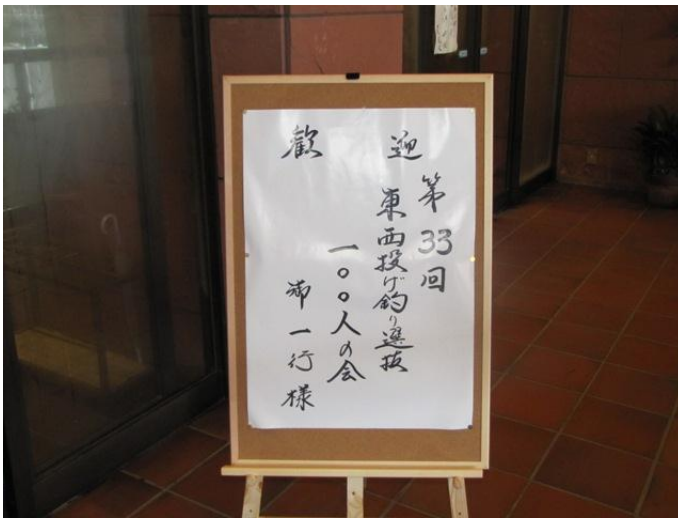 歓迎
第33回
東西投げ釣り選抜
一〇〇人の会
御一行様